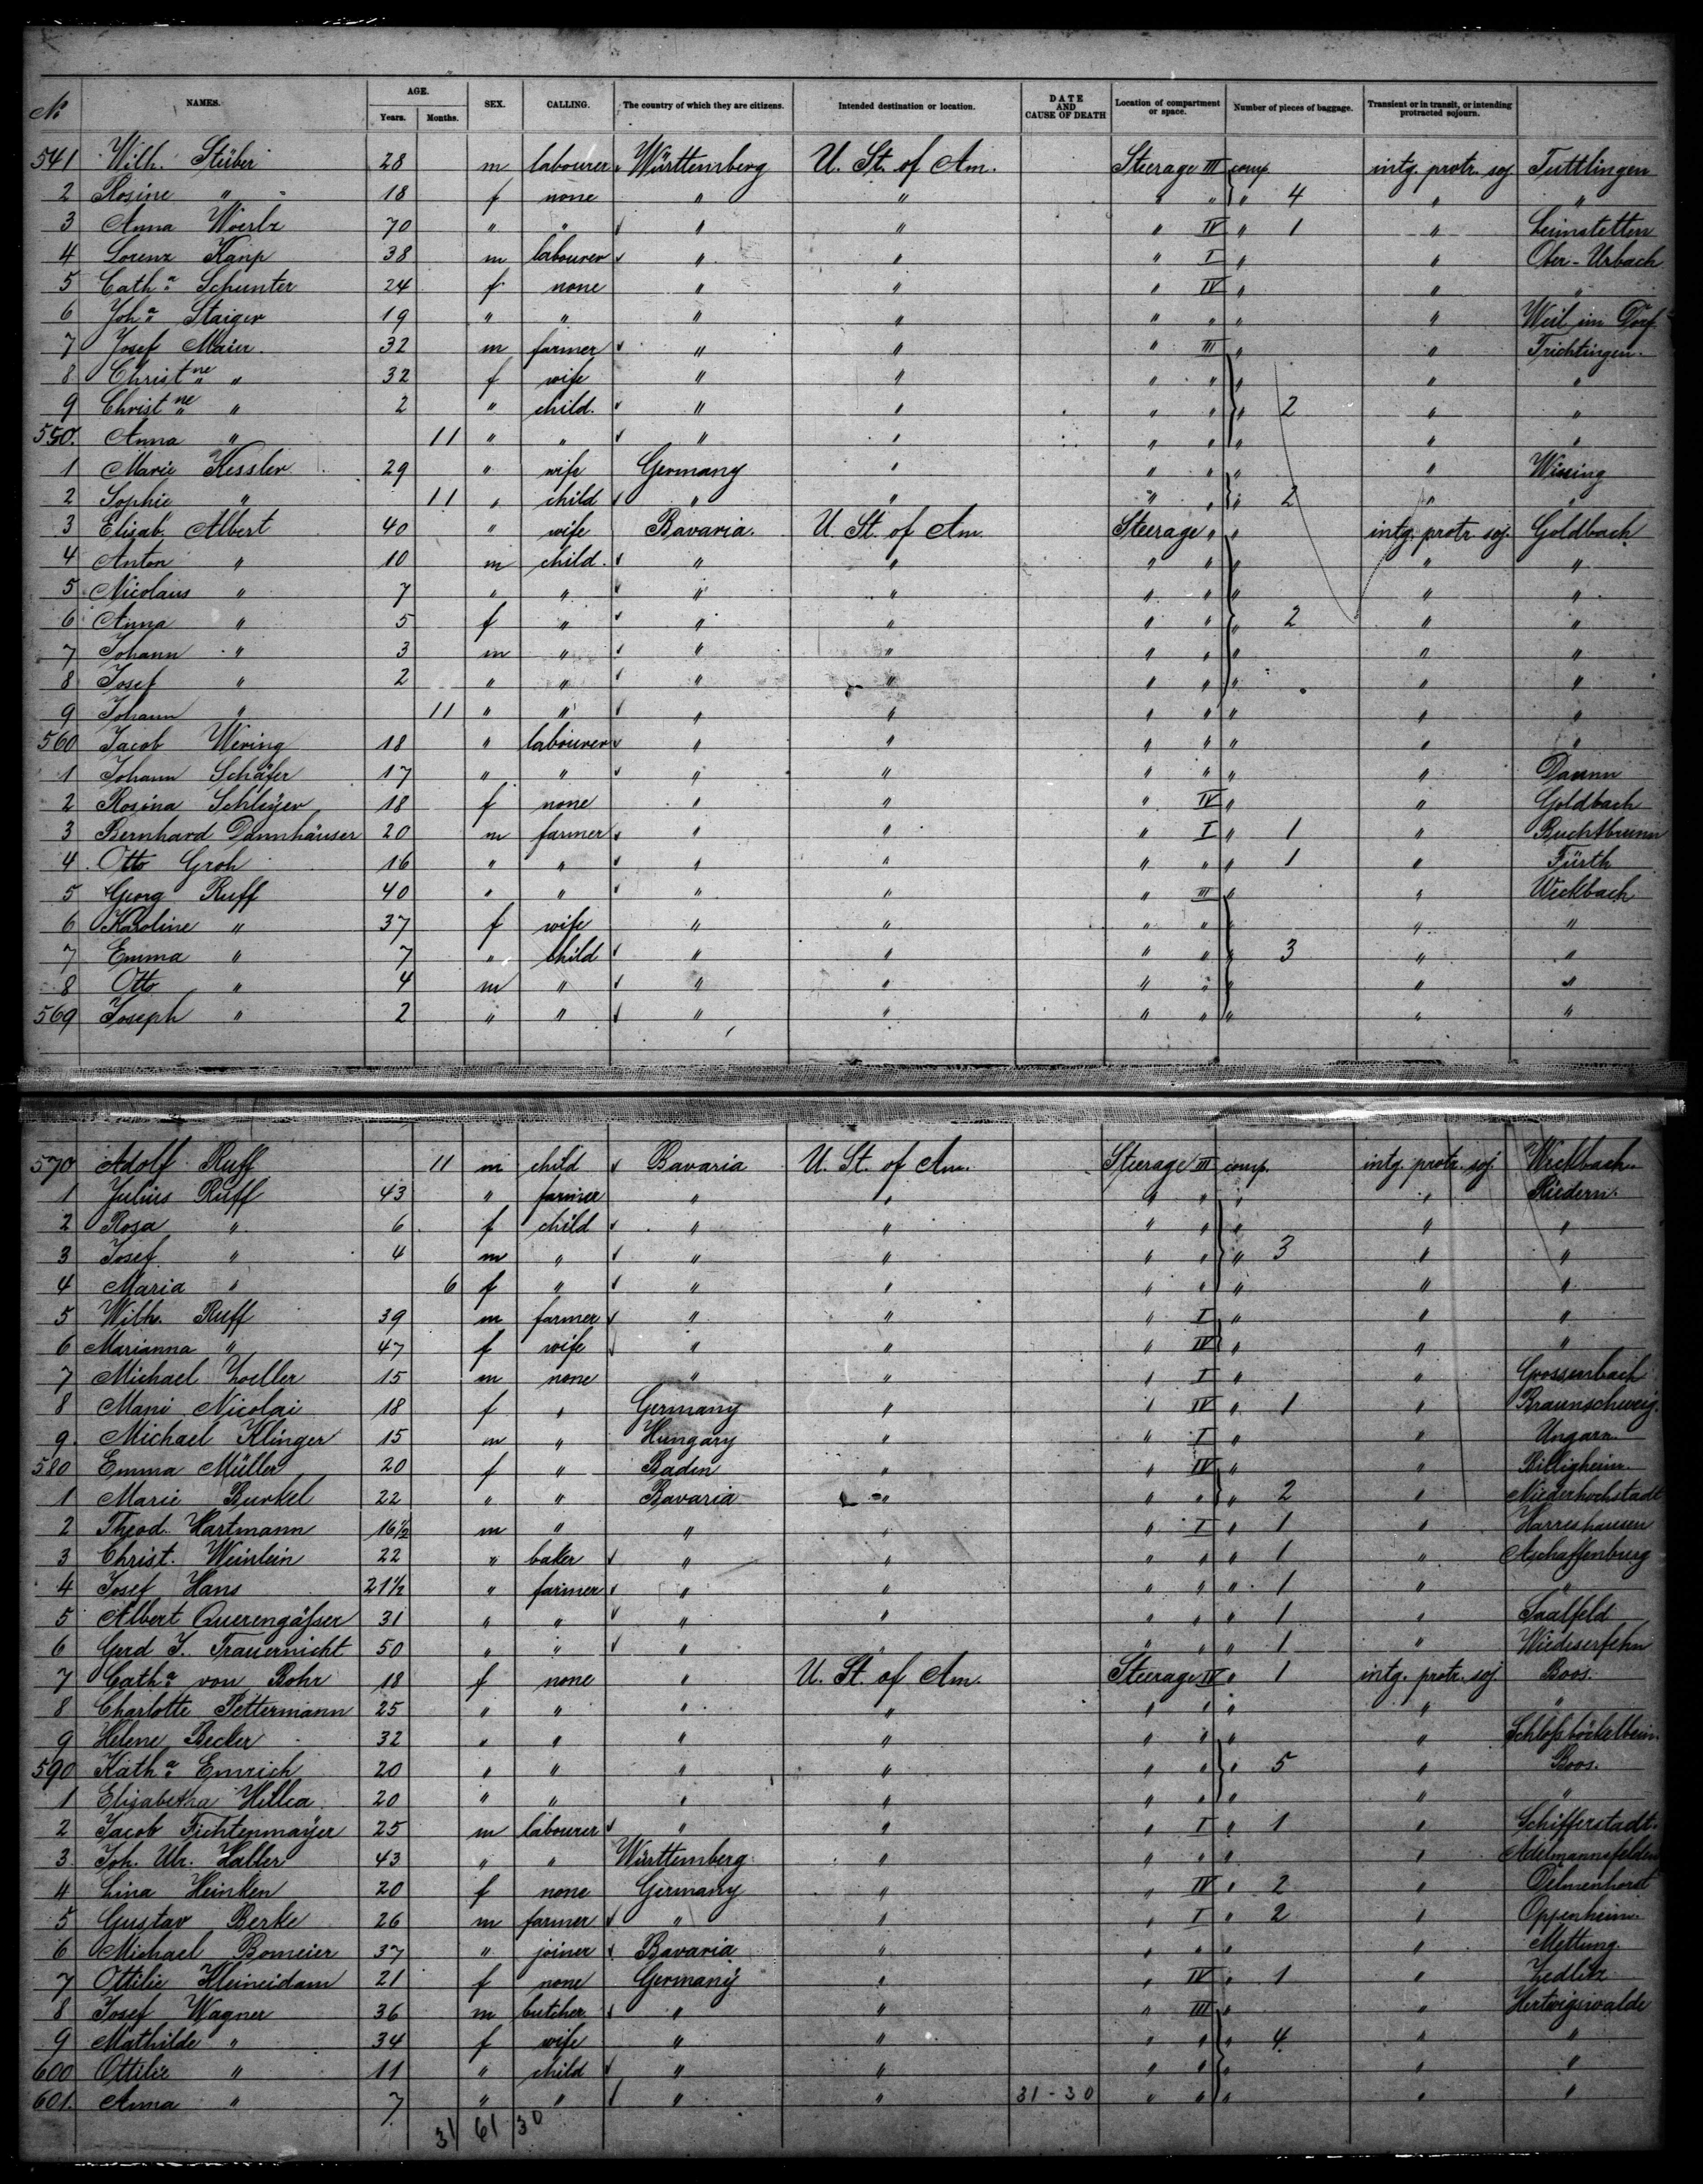 No NAMES. AGE. Years. Months. SEX. CALLING. The country of which they are citizens. Intended destination or location. DATE AND CAUSE OF DEATH Location of compartment or space. Number of pieces of baggage. Transient or in transit, or intending protracted sojourn.
541 Wilh. Stüber 28 m labourer Württemberg U. St. of Am. Steerage III comp intg. protr. soj Tuttlingen
2 Rosine " 18 f none " " " " " 4 " "
3 Anna 70 " " " " " IV " 1 " Leinstetten
4 Lorenz Kanp 38 m labourer " " " I " " Ober-Urbach
5 Cath.a Schunter 24 f none " " " IV " " "
6 Joh.a Staiger 19 " " " " " " " " Weil im Dorf
7 Josef Maier 32 m farmer " " " III " " Trichtingen.
8 Christne " 32 f wife " " " " " " "
9 Christne " 2 " child. " " " " " 2 " "
550. Anna " 11 " " " " " " " " "
1 Marie Kessler 29 " wife Germany " " " " "
2 Sophie " 11 " child " " " " " 2 " "
3 Elisab. Albert 40 " wife Bavaria. U. St. of Am. Steerage " " intg. protr. soj. Goldbach
4 Anton " 10 m child. " " " " " " "
5 Nicolaus " 7 " " " " " " " " "
6 Anna " 5 f " " " " " " 2 " "
7 Johann " 3 m " " " " " " " "
8 Josef " 2 " " " " " " " " "
9 Johann " 11 " " " " " " " " "
560 Jacob Wering 18 " labourer " " " " " " "
1 Johann Schäfer 17 " " " " " " " " Damm
2 Rosina Schleyer 18 f none " " " IV " " Goldbach
3 Bernhard Dannhäuser 20 m farmer " " " I " 1 " Buchtbrunn
4 Otto Groh 16 " " " " " " " 1 " Fürth
5 Georg Ruff 40 " " " " " III " " Weckbach
6 Karoline " 37 f wife " " " " " " "
7 Emma " 7 " child " " " " " 3 " "
8 Otto " 4 m " " " " " " " "
569 Joseph " 2 " " " " " " " " "
570 Adolf Ruff 11 m child Bavaria U. St. of Am. Steerage III comp. intg. protr. soj. Weckbach
1 Julius Ruff 43 " farmer " " " " " " Riedern.
2 Rosa " 6 f child " " " " " " "
3 Josef " 4 m " " " " " " 3 " "
4 Maria " 6 f " " " " " " " "
5 Wilh. Ruff 39 m farmer " " " I " " "
6 Marianna " 47 f wife " " " IV " " "
7 Michael Zoeller 15 m none " " " I " " Grossenbach
8 Marie Nicolai 18 f " Germany " " IV " 1 " Braunschweig.
9. Michael Klinger 15 m " Hungary " " I " " Ungarn.
580 Emma Müller 20 f " Baden " " IV " " Billigheim.
1 Marie Burkel 22 " " Bavaria " " " " 2 " Niederhochstadt
2 Theod. Hartmann 16½ m " " " " I " 1 " Harreshausen
3 Christ. Weinlein 22 " baker " " " " " 1 " Aschaffenburg
4 Josef Hans 21½ " farmer " " " " " 1 " "
5 Albert Querengäßer 31 " " " " " " " 1 " Saalfeld
6 Gerd J. Trauernicht 50 " " " " " " " 1 " Wiedeserfehn
7 Cath.a von Bohr 18 f none " U. St. of Am. Steerage IV " 1 intg. protr. soj. Boos.
8 Charlotte Pettermann 25 " " " " " " " " "
9 Helene Becker 32 " " " " " " " " Schloßböckelheim
590 Kath.a Emrich 20 " " " " " " " 5 " Boos.
1 Elisabetha Hellea 20 " " " " " " " " "
2 Jacob Fichtenmayer 25 m labourer " " " I " 1 " Schifferstadt.
3. Joh. Ulr. Haller 43 " " Württemberg " " " " " Adelmannsfelden
4 Lina Heinken 20 f none Germany " " IV " 2 " Delmenhorst
5 Gustav Berke 26 m farmer " " " I " 2 " Oppenheim.
6 Michael Bomeier 37 " joiner Bavaria " " " " " Mettung.
7 Ottilie Kleineidam 21 f none Germany " " IV " 1 " Zedlitz
8 Josef Wagner 36 m butcher " " " III " " Hertwigswalde
9 Mathilde " 34 f wife " " " " " 4 " "
600 Ottilie " 11 " child " " " " " " "
601. Anna " 7 " " " " 31-30 " " " " "
31 61 30